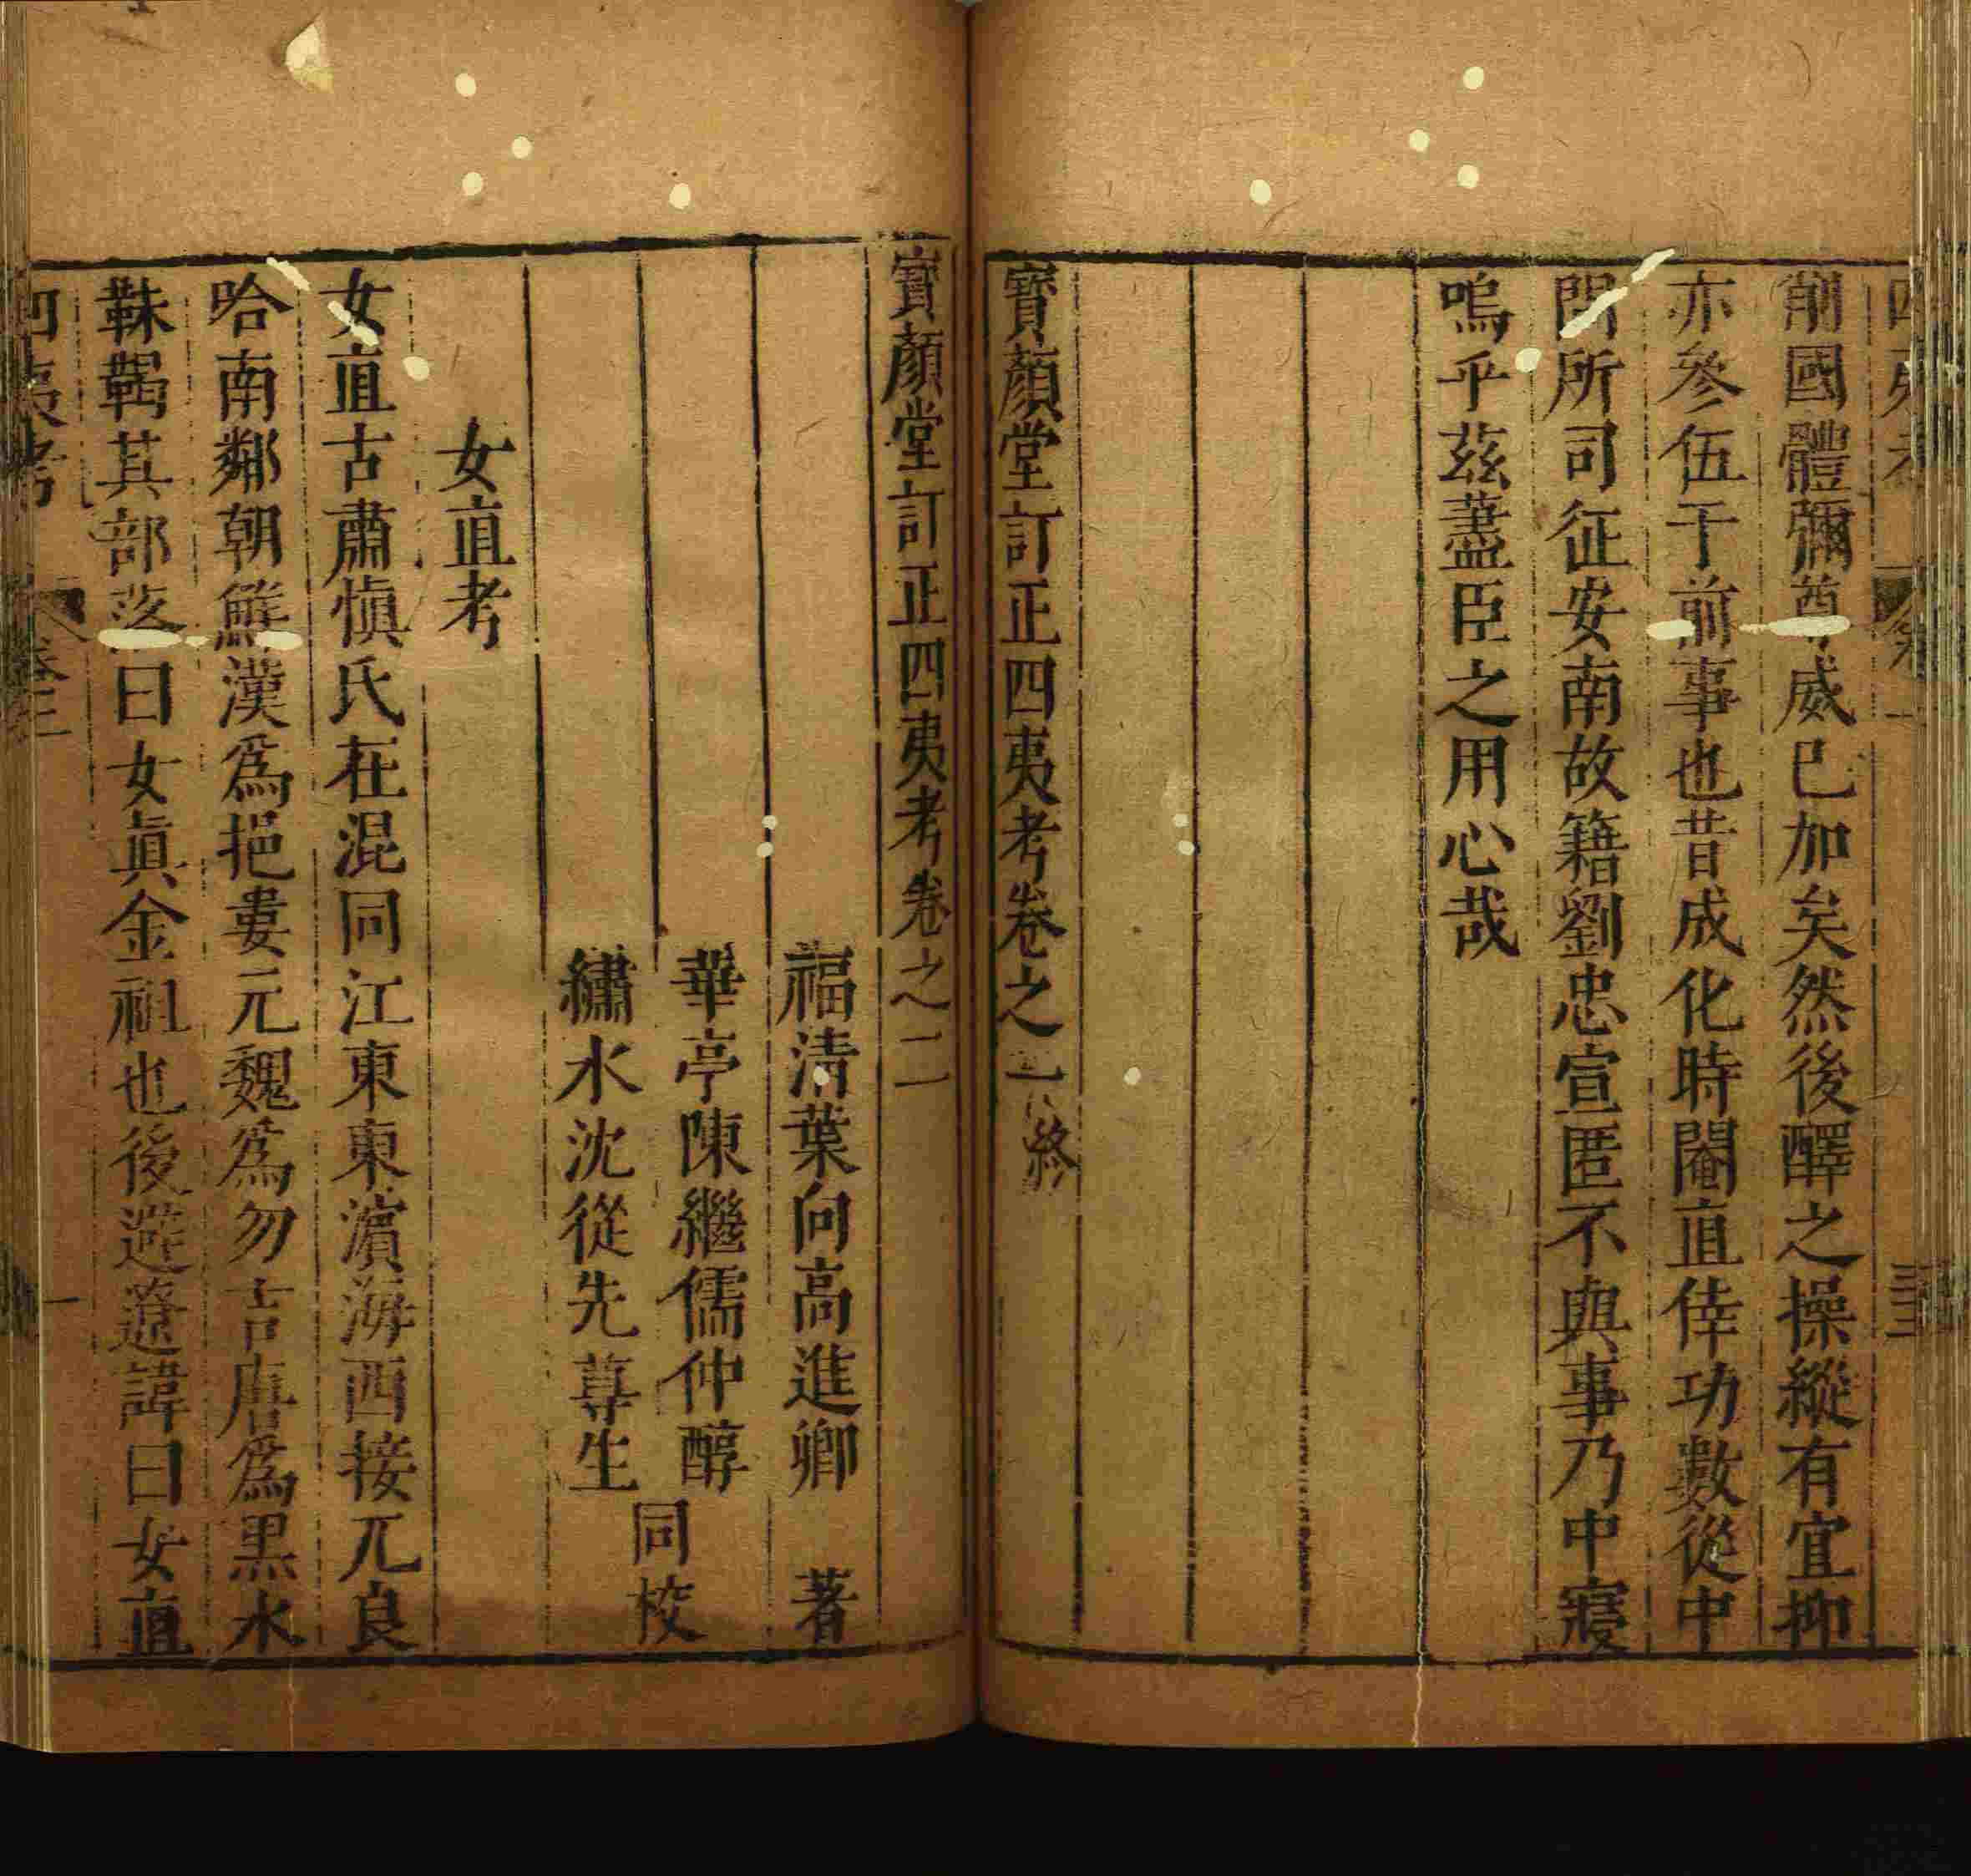 削國體彌尊威已加矣然後醳之操縱有宜抑
亦參伍于前事也昔成化時閹直倖功數從中
問所司征安南故籍劉忠宣匿不與事乃中寢
嗚乎茲藎臣之用心哉
寶顏堂訂正四夷考卷之一終
寶顏堂訂正四夷考卷之二
福清葉向高進卿 著
華亭陳繼儒仲醇
繡水沈從先蕁生
同校
女直考
女直古肅慎氏在混同江東東濱海西接兀良
哈南鄰朝鮮漢爲挹婁元魏爲勿吉唐爲黑水
靺鞨其部落曰女眞金祖也後避遼諱曰女直
四夷考 卷二 一